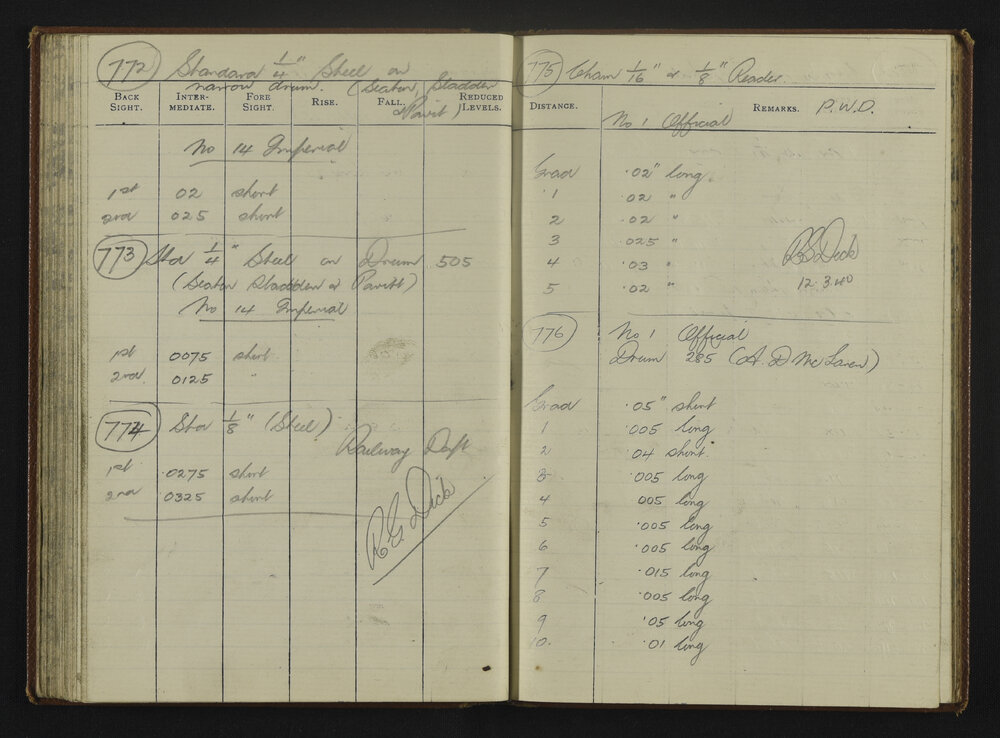 772 Standard 1/4" Steel on
narrow drum. (Seaton, Sladden
Pavitt)
BACK SIGHT. INTER-MEDIATE. FORE SIGHT. RISE. FALL. REDUCED LEVELS.
No 14 Imperial
1st 02 short
2nd 025 short
773 Std 1/4" Steel on Drum 505
(Seaton Sladden & Pavitt)
No 14 Imperial
1st 0075 short
2nd 0125 "
774 Std 1/8" (Steel)
Railway Dept
1st .0275 short
2nd 0325 short
RG Dick
775 Chain 1/16" & 1/8" Reader.
DISTANCE. REMARKS. P.W.D.
No 1 Official
Grad .02" long
1 .02 "
2 .02 "
3 .025 "
4 .03 "
5 .02 "
RG Dick
12.3.40
776 No 1 Official
Drum 285 (A. D McLaren)
Grad .05" short
1 .005 long
2 .04 short.
3 .005 long
4 005 long
5 .005 long
6 .005 long
7 .015 long
8 .005 long
9 .05 long
10. .01 long